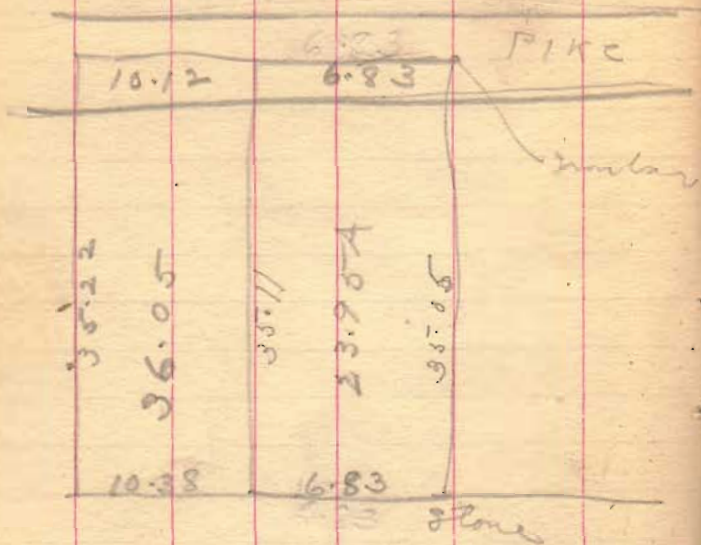 PIKE
10.12 6.83
iron bar
35.22
36.05
35.11
23.95 A
35.05
10.38 6.83
Stone